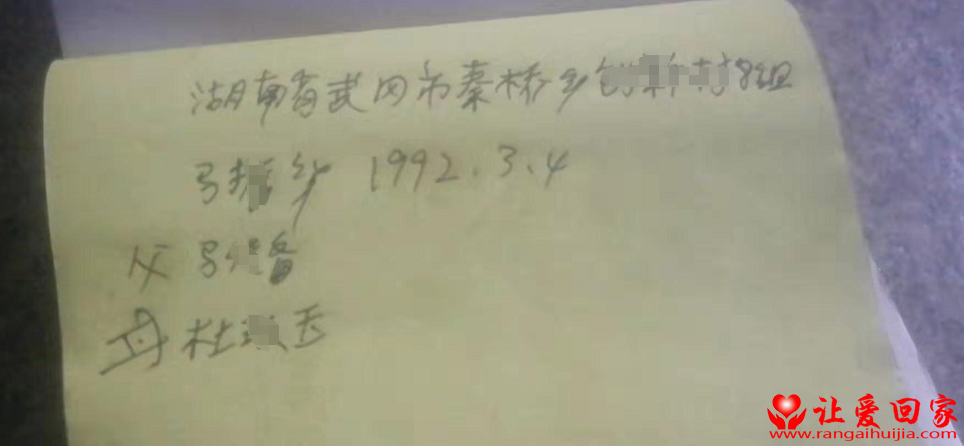 湖南省武冈市秦桥乡村8组
马华 1992.3.4
父 马
母 杜玉
让爱回家
www.rangaihuijia.com